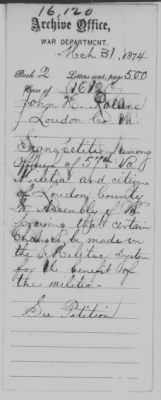 16,120
Archive Office,
WAR DEPARTMENT,
Mch 31, 1874
Book 2 Letters sent, page 500
Case of 16120
John K.
Loudon Co Va.
petition among
Officers of 57th Va
Militia and citizens
of Loudon County
to Assembly of Va
praying that certain
changes be made in
the Militia System
for the benefit of
the militia.
See Petition